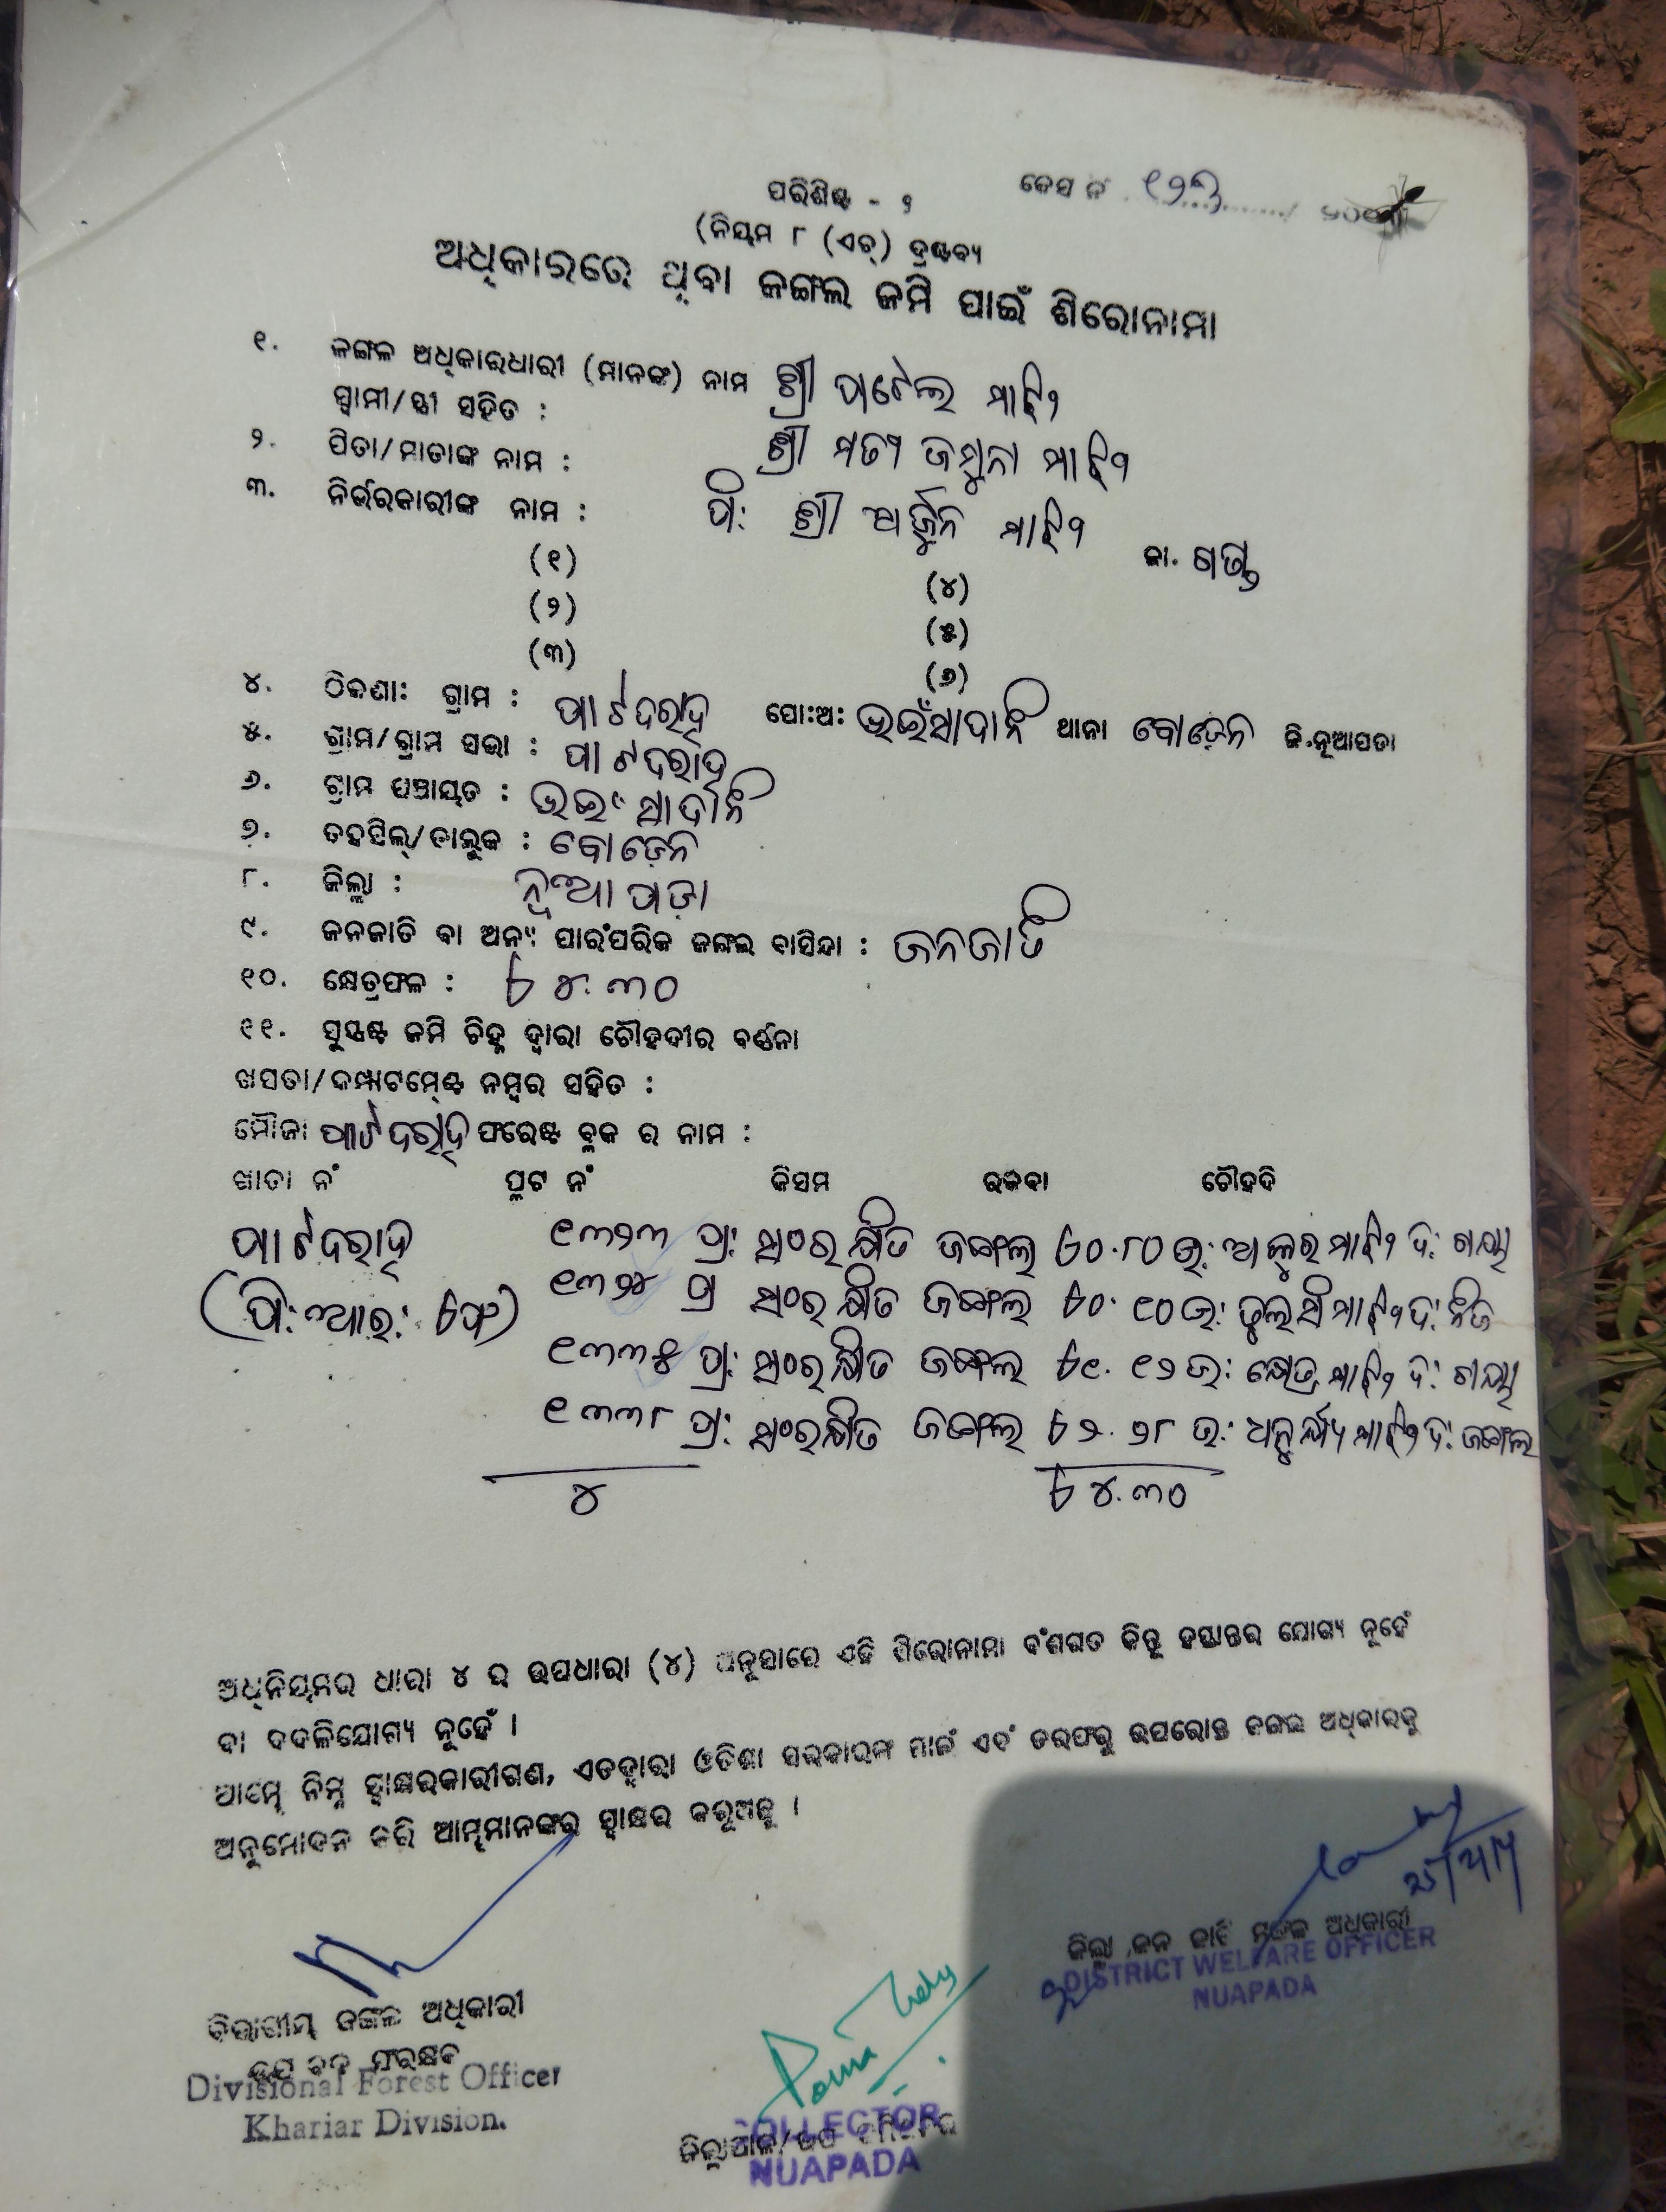 ପରିଶିଷ୍ଟ - ୨ କେସ ନଂ ୧୨୩
(ନିୟମ ୮ (ଏଚ୍) ଦ୍ରଷ୍ଟବ୍ୟ
ଅଧିକାରରେ ଥିବା ଜଙ୍ଗଲ ଜମି ପାଇଁ ଶିରୋନାମା
୧. ଜଙ୍ଗଳ ଅଧିକାରଧାରୀ (ମାନଙ୍କ) ନାମ ଶ୍ରୀ ପଟେଲ ମାଝି
ସ୍ୱାମୀ/ସ୍ତ୍ରୀ ସହିତ :
୨. ପିତା/ମାତାଙ୍କ ନାମ : ଶ୍ରୀ ମତ୍ୟ ଜମୁନା ମାଝି
୩. ନିର୍ଭରକାରୀଙ୍କ ନାମ : ପି: ଶ୍ରୀ ଅର୍ଜୁନ ମାଝି ଜା. ଗଣ୍ଡ
(୧) (୪)
(୨) (୫)
(୩) (୬)
୪. ଠିକଣା: ଗ୍ରାମ : ପାଟଦରାହ ପୋ:ଅ: ଭଇଁସାଦାନି ଥାନା ବୋଡେନ ଜି.ନୂଆପଡା
୫. ଗ୍ରାମ/ଗ୍ରାମ ସଭା : ପାଟଦରାହ
୬. ଗ୍ରାମ ପଞ୍ଚାୟତ : ଭଇଁସାଦାନି
୭. ତହସିଲ୍/ତାଲୁକ : ବୋଡେନ
୮. ଜିଲ୍ଲା : ନୂଆପଡା
୯. ଜନଜାତି ବା ଅନ୍ୟ ପାରଂପରିକ ଜଙ୍ଗଲ ବାସିନ୍ଦା : ଜନଜାତି
୧୦. କ୍ଷେତ୍ରଫଳ : ୪.୩୦
୧୧. ସୁସ୍ପଷ୍ଟ ଜମି ଚିହ୍ନ ଦ୍ୱାରା ଚୌହଦୀର ବର୍ଣ୍ଣନା
ଖସଡା/କମ୍ପାଟମେଣ୍ଟ ନମ୍ବର ସହିତ :
ମୌଜା ପାଟଦରାହ ଫରେଷ୍ଟ ବ୍ଲକ ର ନାମ :
ଖାତା ନଂ ପ୍ଲଟ ନଂ କିସମ ରକବା ଚୌହଦି
ପାଟଦରାହ ୧୩୨୩ ପ୍ର: ସଂରକ୍ଷିତ ଜଙ୍ଗେଲ ୦.୮୦ ଉ: ଅଙ୍କୁର ମାଝି ଦ:
(ପି:ଆର: ) ୧୩୨୪ ପ୍ର ସଂରକ୍ଷିତ ଜଙ୍ଗେଲ ୦.୧୦ ଉ: ତୁଲସି ମାଝି ଦ: ନିଜ
୧୩୩୫ ପ୍ର: ସଂରକ୍ଷିତ ଜଙ୍ଗେଲ ୧.୧୨ ଉ: କ୍ଷେତ୍ର ମାଝି ଦ:
୧୩୩୮ ପ୍ର: ସଂରକ୍ଷିତ ଜଙ୍ଗେଲ ୨.୨୮ ଉ: ମାଝି ଦ: ଜଙ୍ଗେଲ
୪ ୪.୩୦
ଅଧିନିୟମର ଧାରା ୪ ର ଉପଧାରା (୪) ଅନୁସାରେ ଏହି ଶିରୋନାମା ବଂଶଗତ କିନ୍ତୁ ହସ୍ତାନ୍ତର ଯୋଗ୍ୟ ନୁହେଁ
ବା ବଦଳିଯୋଗ୍ୟ ନୁହେଁ ।
ଆମ୍ଭେ ନିମ୍ନ ସ୍ୱାକ୍ଷରକାରୀଗଣ, ଏତଦ୍ୱାରା ଓଡିଶା ସରକାରଙ୍କ ପାଇଁ ଏବଂ ତରଫରୁ ଉପରୋକ୍ତ ଜଙ୍ଗଲ ଅଧିକାରକୁ
ଅନୁମୋଦନ କରି ଆମ୍ଭମାନଙ୍କର ସ୍ୱାକ୍ଷର କରୁଅଛୁ ।
ଜିଲ୍ଲା ଜନ ଜାତି ମଙ୍ଗଳ ଅଧିକାରୀ
DISTRICT WELFARE OFFICER
NUAPADA
ବିଭାଗୀୟ ଜଙ୍ଗଳ ଅଧିକାରୀ
Divisional Forest Officer
Khariar Division.
COLLECTOR
NUAPADA